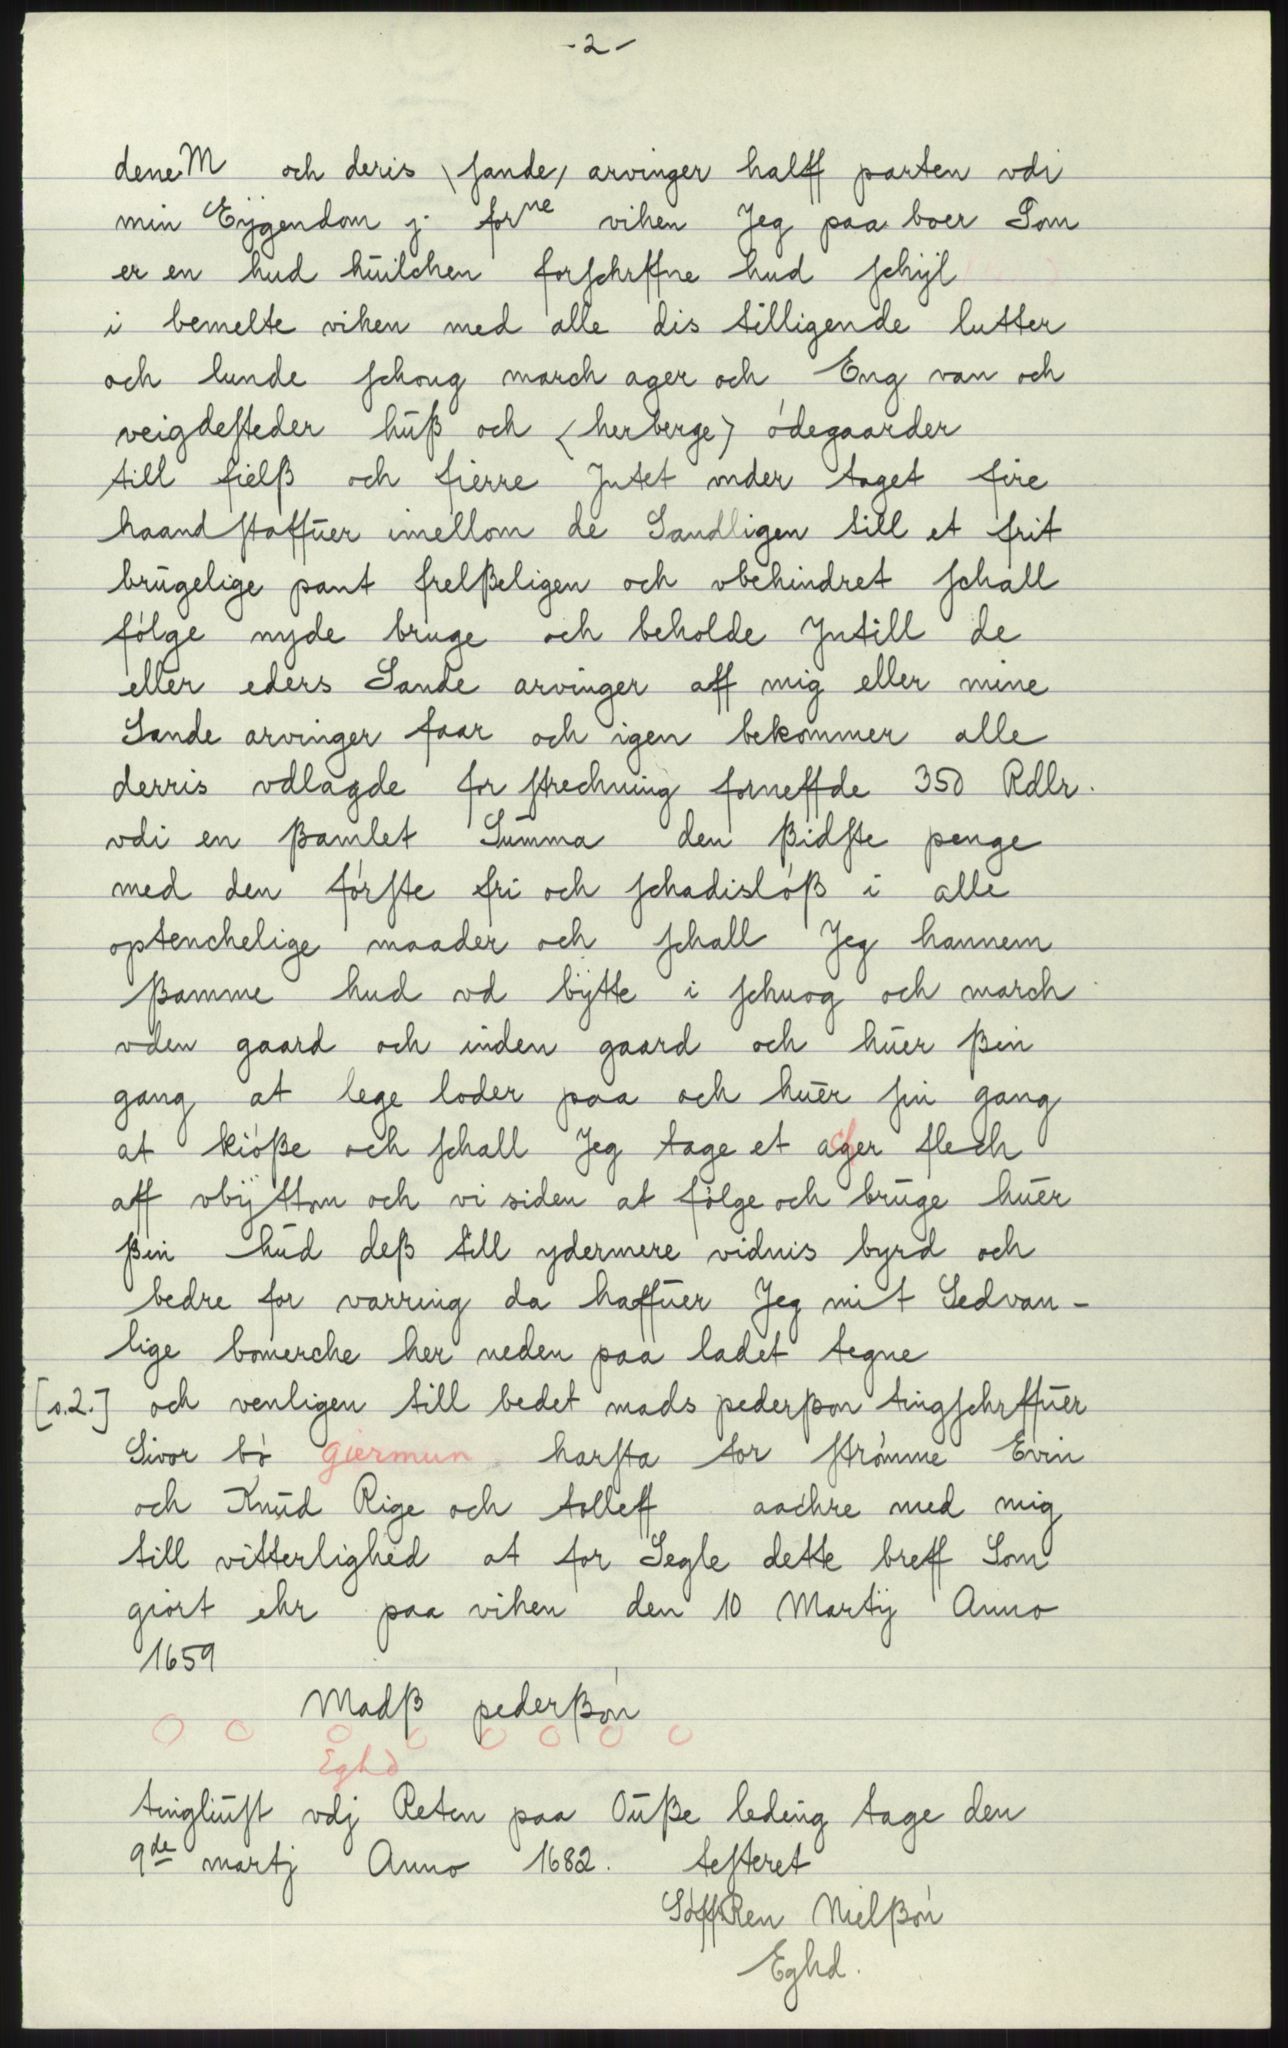 -2-
deneM och deris \sande/ arvinger halff parten vdi
min Eÿgendom j forne viken Jeg paa boer Som
er en hud huilchen forschrffne hud schÿl
i bemelte viken med alle dis tilligende lutter
och lunde schoug march ager och Eng van och
veigdesteder huß och <herberge> ódegaarder
till fielß och fierre Jntet vnder taget fire
haandstaffuer imellom de Sandligen till et frit
brugelige pant frelßeligen och vbehindret schall
fólge nyde bruge och beholde Jntill de
eller eders Sande arvinger aff mig eller mine
Sande arvinger faar och igen bekommer alle
derris vdlagde forstrechning forneffde 350 Rdlr.
vdi en ßamlet Summa den ßidste penge
med den fórste fri och schadislóß i alle
optenchelige maader och schall Jeg hannem
ßamme hud vd bÿtte i schuog och march
vden gaard och inden gaard och huer ßin
gang at lege loder paa och huer sin gang
at kióße och schall Jeg tage et ager flech
aff vbÿttom och vi siden at fólge och bruge huer
ßin hud deß till ydermere vidnis byrd och
bedre for varring da haffuer Jeg mit Sedvan-
lige bomerche her neden paa ladet tegne
[s.2.] och venligen till bedet mads pederßon tingschrffuer
Sivor bó giermun harsta tor strómme Evin
och Knud Rige och tolleff aachre med mig
till vitterlighed at for Segle dette breff Som
giort ehr paa viken den 10 Martÿ Anno
1659
Madß pederßón
O O O O O O O O
Eghd
tingliust vdj Reten paa Ouße leding tage den
9de martj Anno 1682. testeret
SóffRen Nielßón
Eghd.